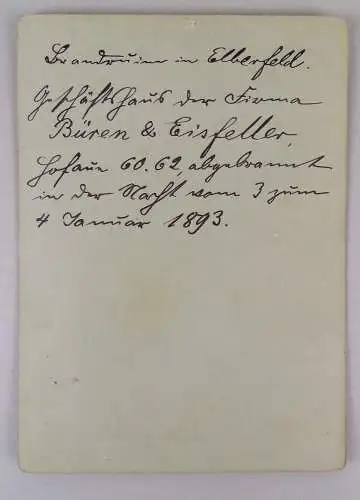 Brandruine in Elberfeld.
Geschäftshaus der Firma
Büren & Eisfeller,
Hofaue 60.62, abgebrannt
in der Nacht vom 3 zum
4 Januar 1893.